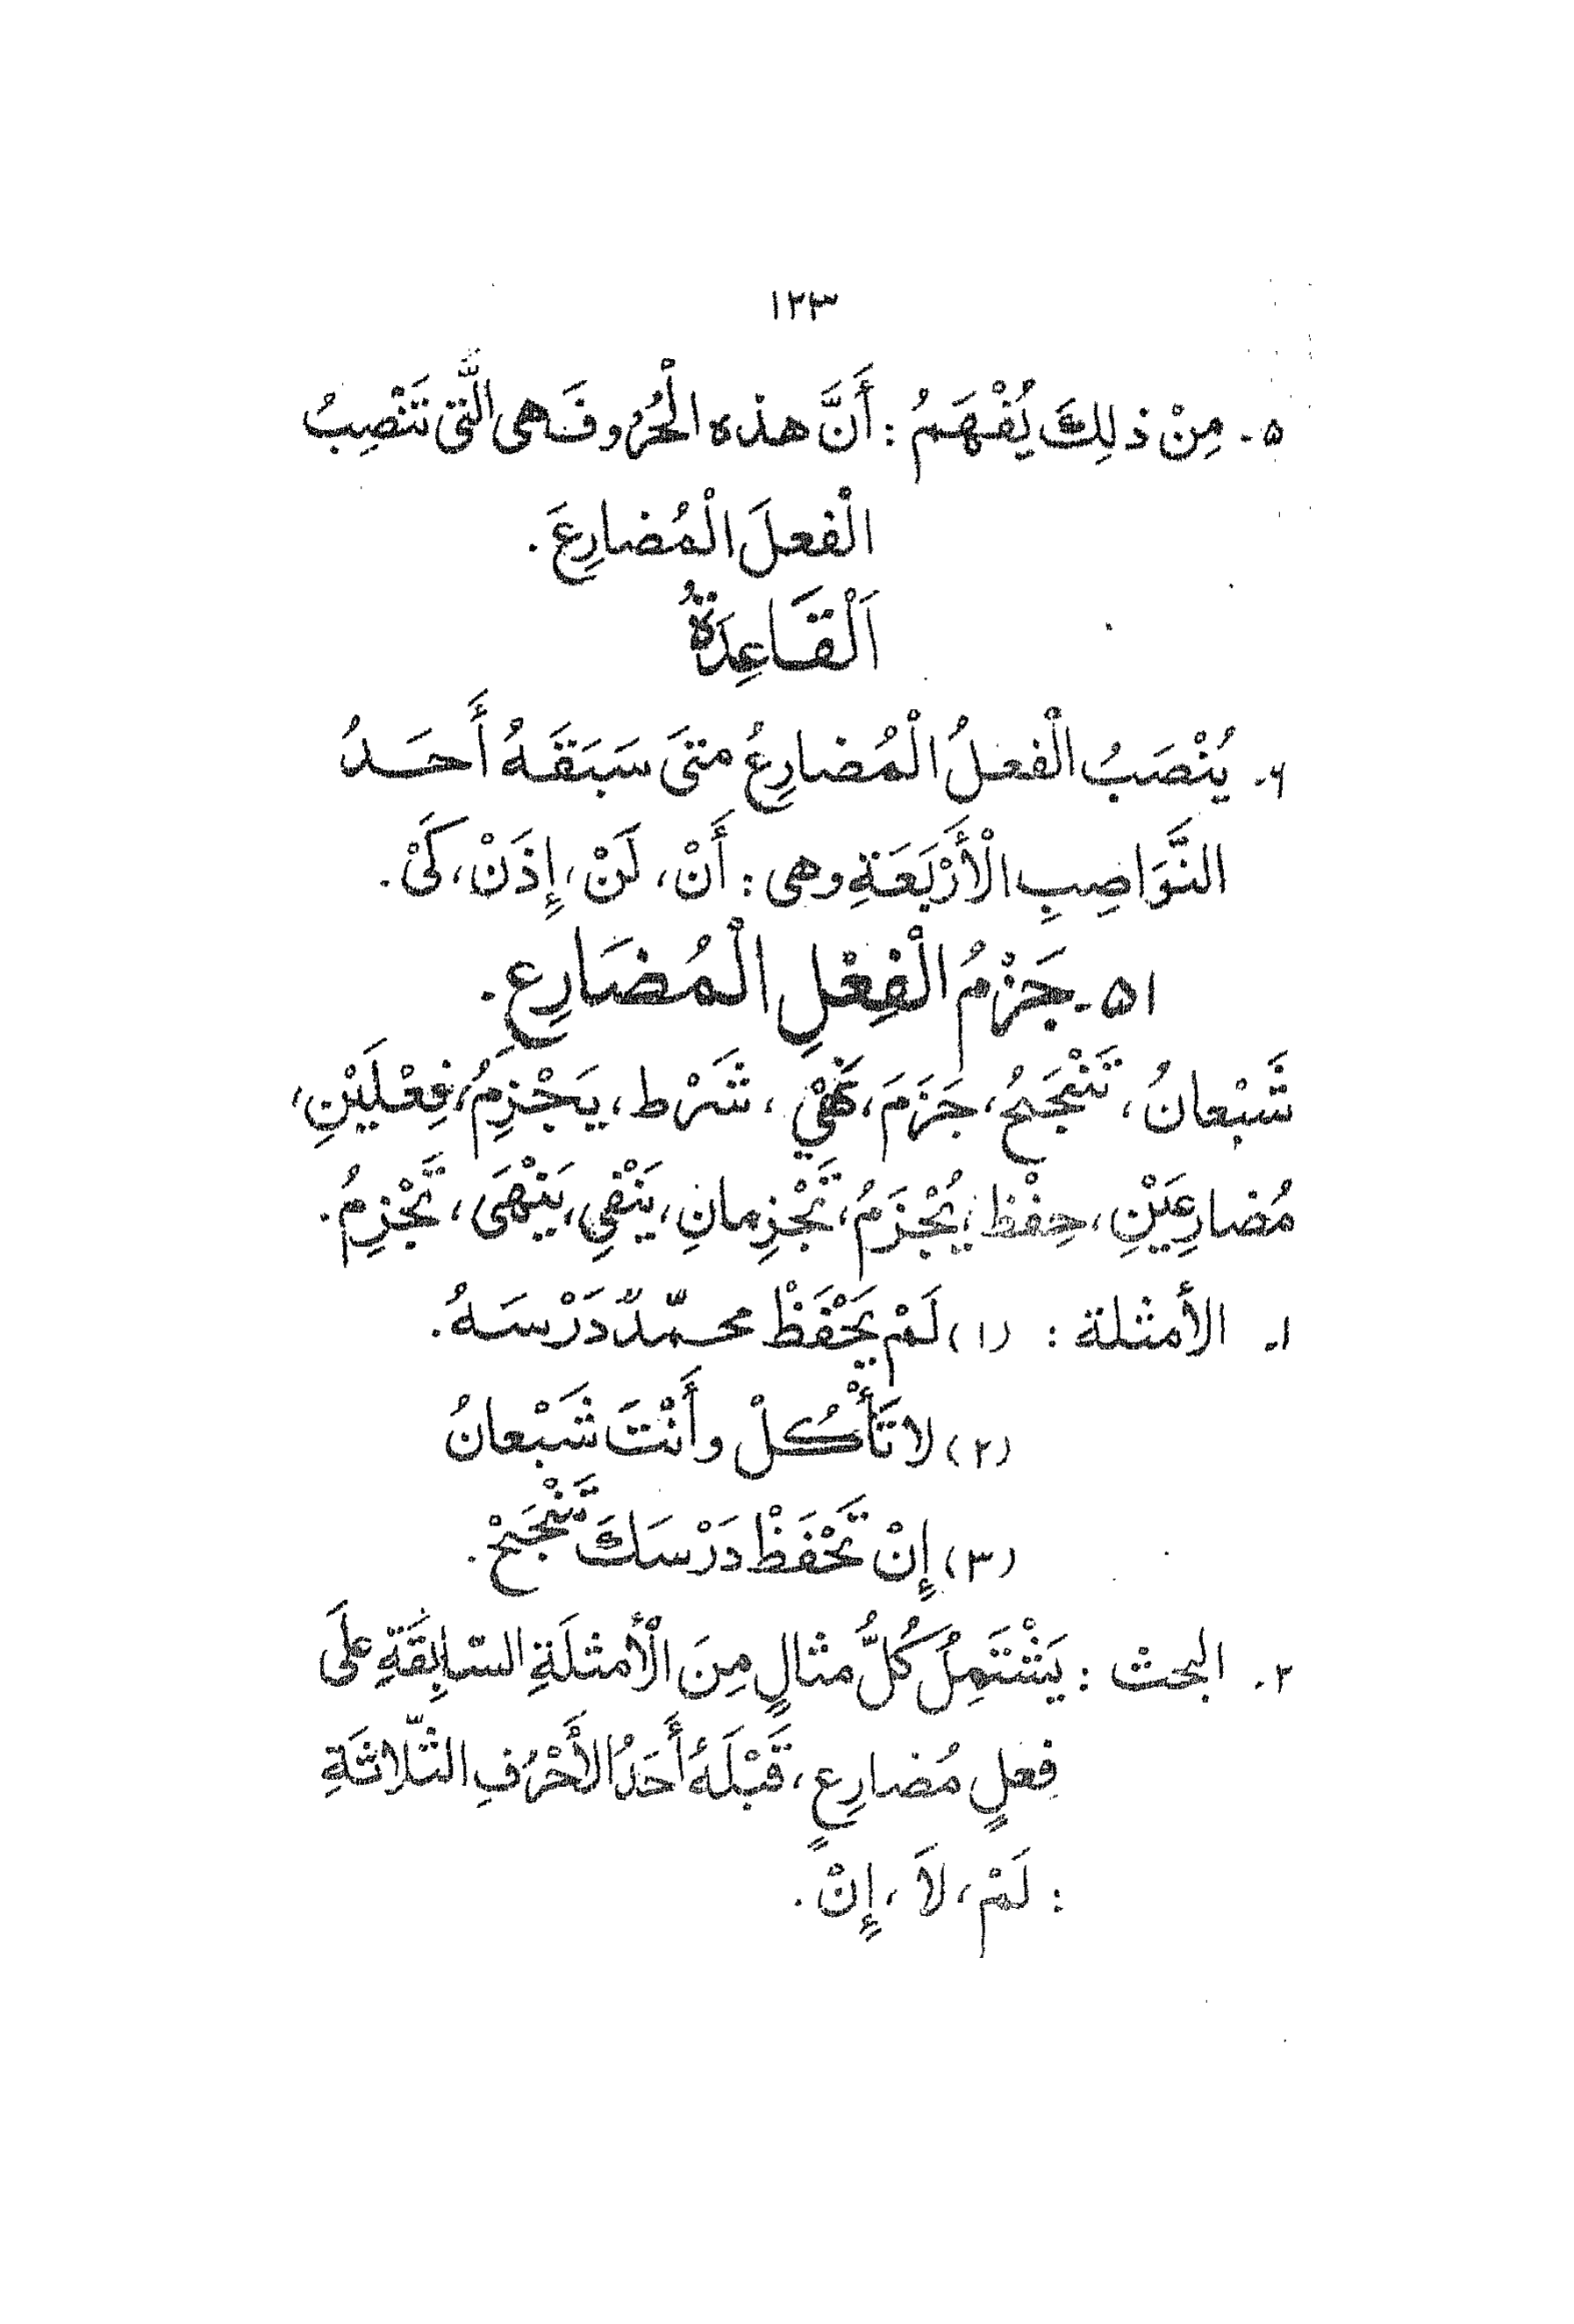 ١٢٣
۵- مِنْ ذلِكَ يُفْهَمُ : أَنَّ هذه الْحُرُوفَ هى الَّتى تَنْصِبُ
الْفعلَ الْمُضارِعَ .
اَلْقَاعِدَةُ
۶- يُنْصَبُ الْفعلُ الْمُضارِعُ متىَ سَبَقَهُ أَحَدُ
النَّوَاصِبِ الْأَرْبَعَةِ وهى : أَنْ، لَنْ، إِذَنْ، كَىْ .
۵۱- جَزْمُ الْفِعْلِ الْمُضَارِعِ .
شَبْعانُ، تَنْجَحُ، جَزَمَ، نَهْيٌ، شَرْط، يَجْزِمُ، فِعْلَيْنِ،
مُضارِعَيْنِ، حِفْظ، يُجْزَمُ، تَجْزِمانِ، يَنْفِي، يَنْهَى، تَجْزِمُ .
١- الأمثلة : (١) لَمْ يَحْفَظْ محمّدٌ دَرْسَهُ .
(٢) لا تَأْكُلْ وأَنْتَ شَبْعانُ
(٣) إِنْ تَحْفَظْ دَرْسَكَ تَنْجَحْ .
٢- البحث : يَشْتَمِلُ كُلُّ مثالٍ مِنَ الْأَمثلَةِ السّابِقَةِ عَلَى
فِعلٍ مُضارِعٍ، قَبْلَهُ أَحَدُ الأَحْرُفِ الثّلاثَةِ
: لَمْ، لاَ، إِنْ .